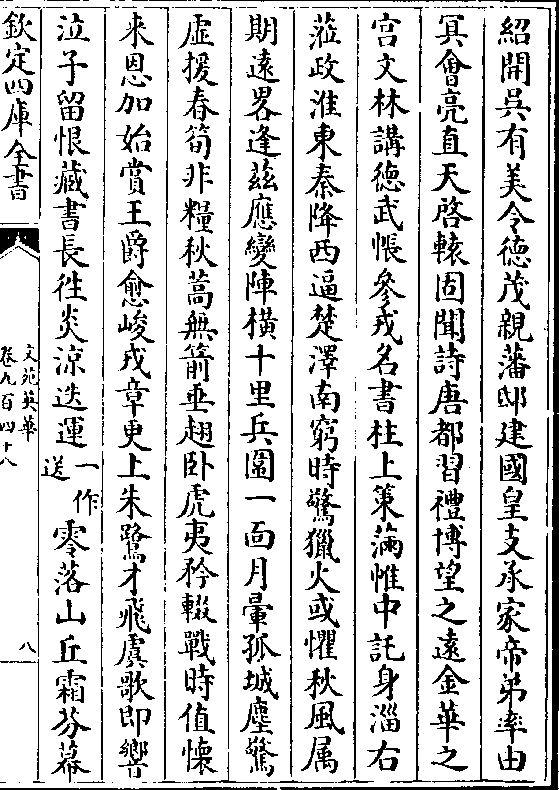 紹開吳有美令德茂親藩邸建國皇支承家帝弟率由
冥會亮直天啓轅固聞詩唐都習禮博望之遠金華之
宫文林講德武帳參戎名書柱上筞滿惟中託身淄右
蒞政淮東秦降西逼楚澤南窮時驚獵火或懼秋風属
期遠畧逢兹應變陣横十里兵圍一面月暈孤城塵驚
虚援春筍非糧秋蒿無箭垂翅卧虎夷矜輟戰時值懐
来恩加始賞王爵愈峻戎章更上朱鷺才飛虞歌即響
泣子留恨藏書長徃炎涼迭運一作送零落山丘霜芬幕
欽定四庫全書
文苑英華
卷九百四十八
八